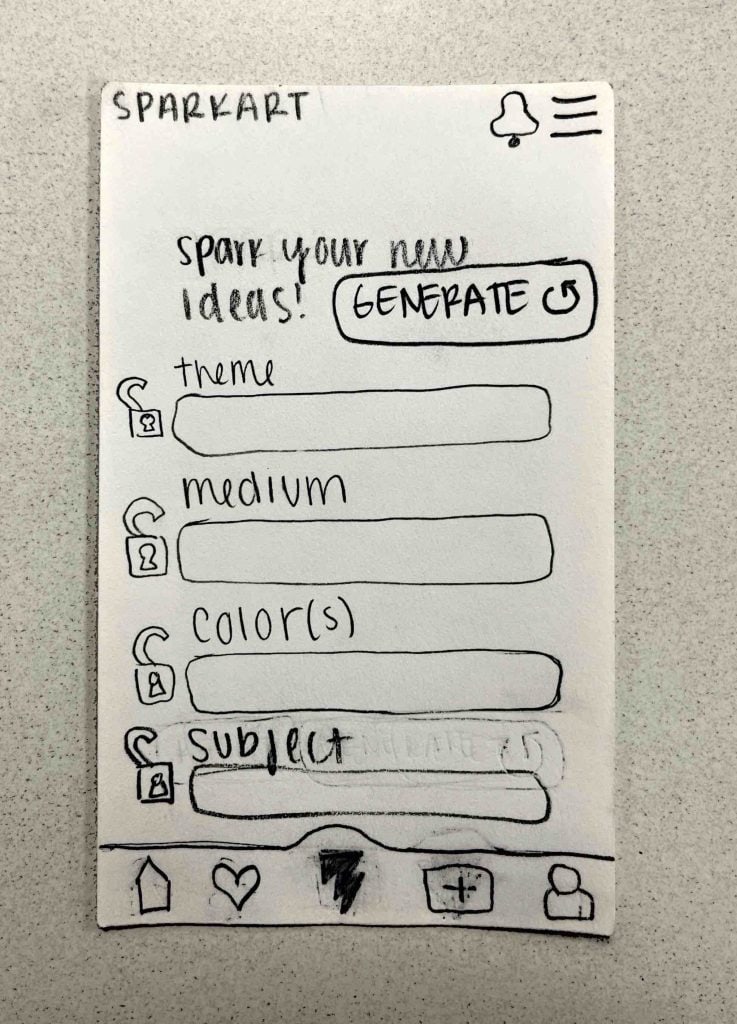 SPARKART
spark your new
ideas!
GENERATE
theme
medium
color(s)
subject
GENERATE